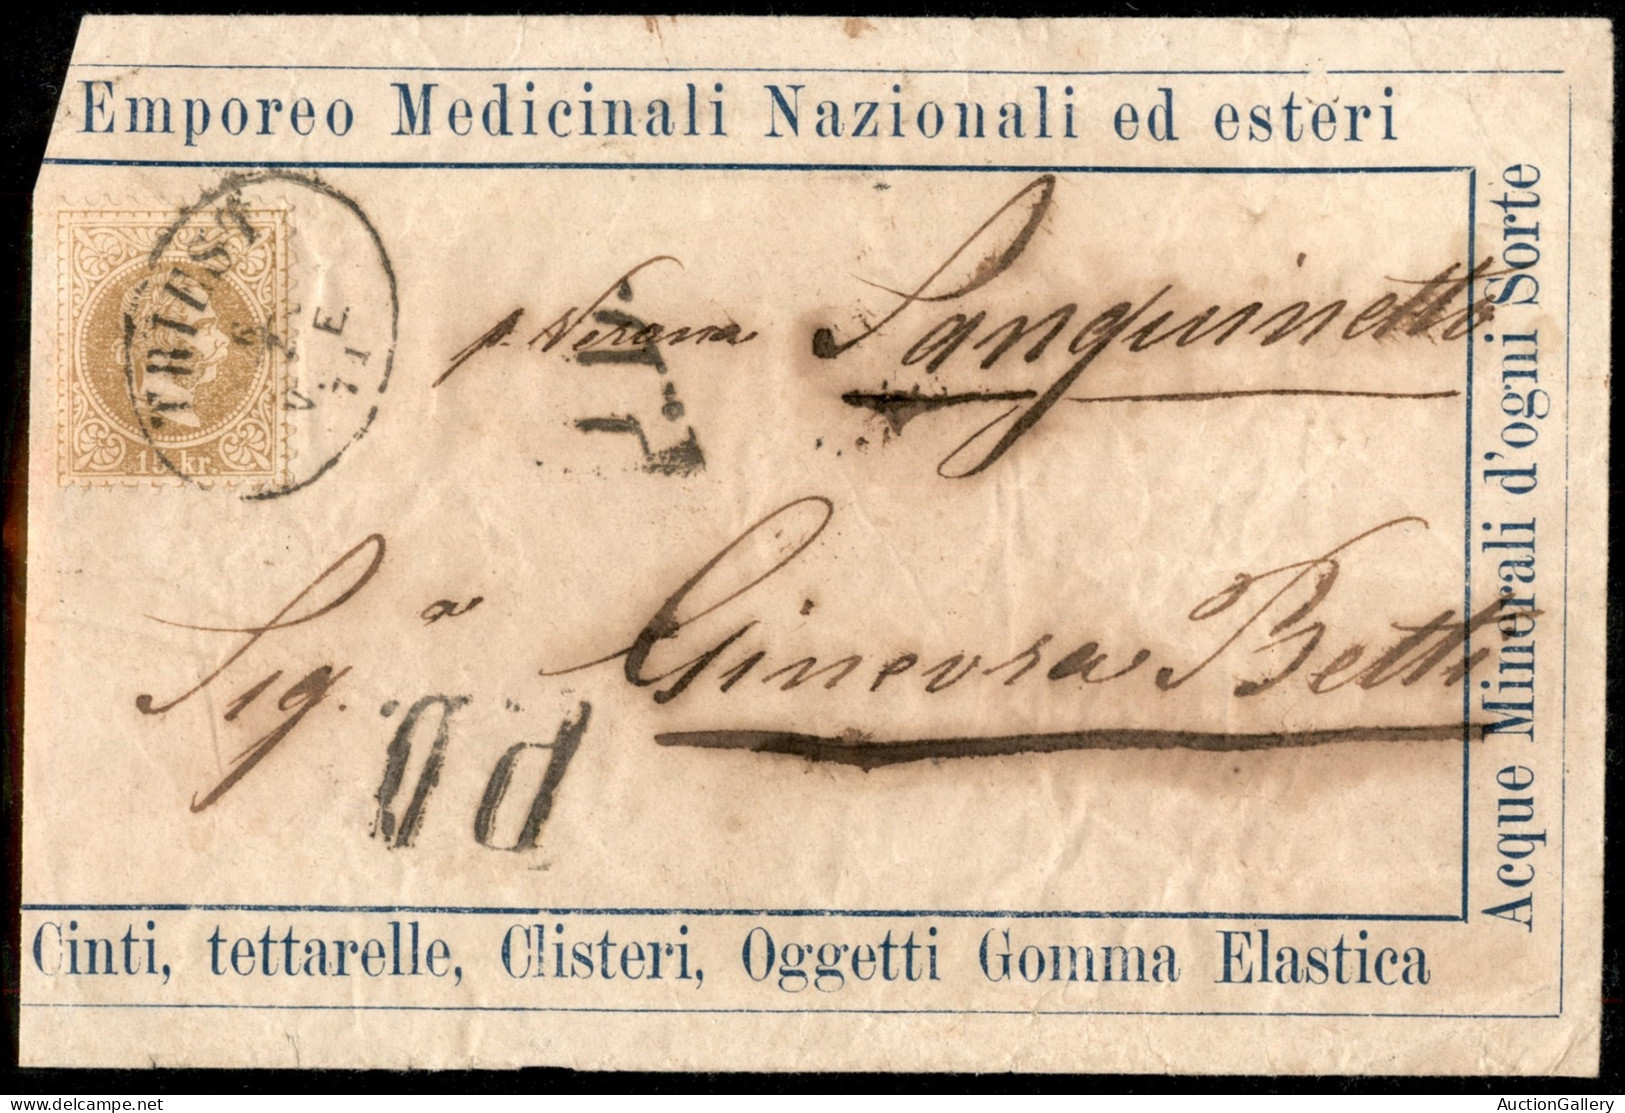 Emporeo Medicinali Nazionali ed esteri
TRIEST
V. E.
71
15 kr.
p. Verona Sanguinetto
Sig.ª Ginevra Betti
P.D.
Acque Minerali d'ogni Sorte
Cinti, tettarelle, Clisteri, Oggetti Gomma Elastica
AuctionGallery